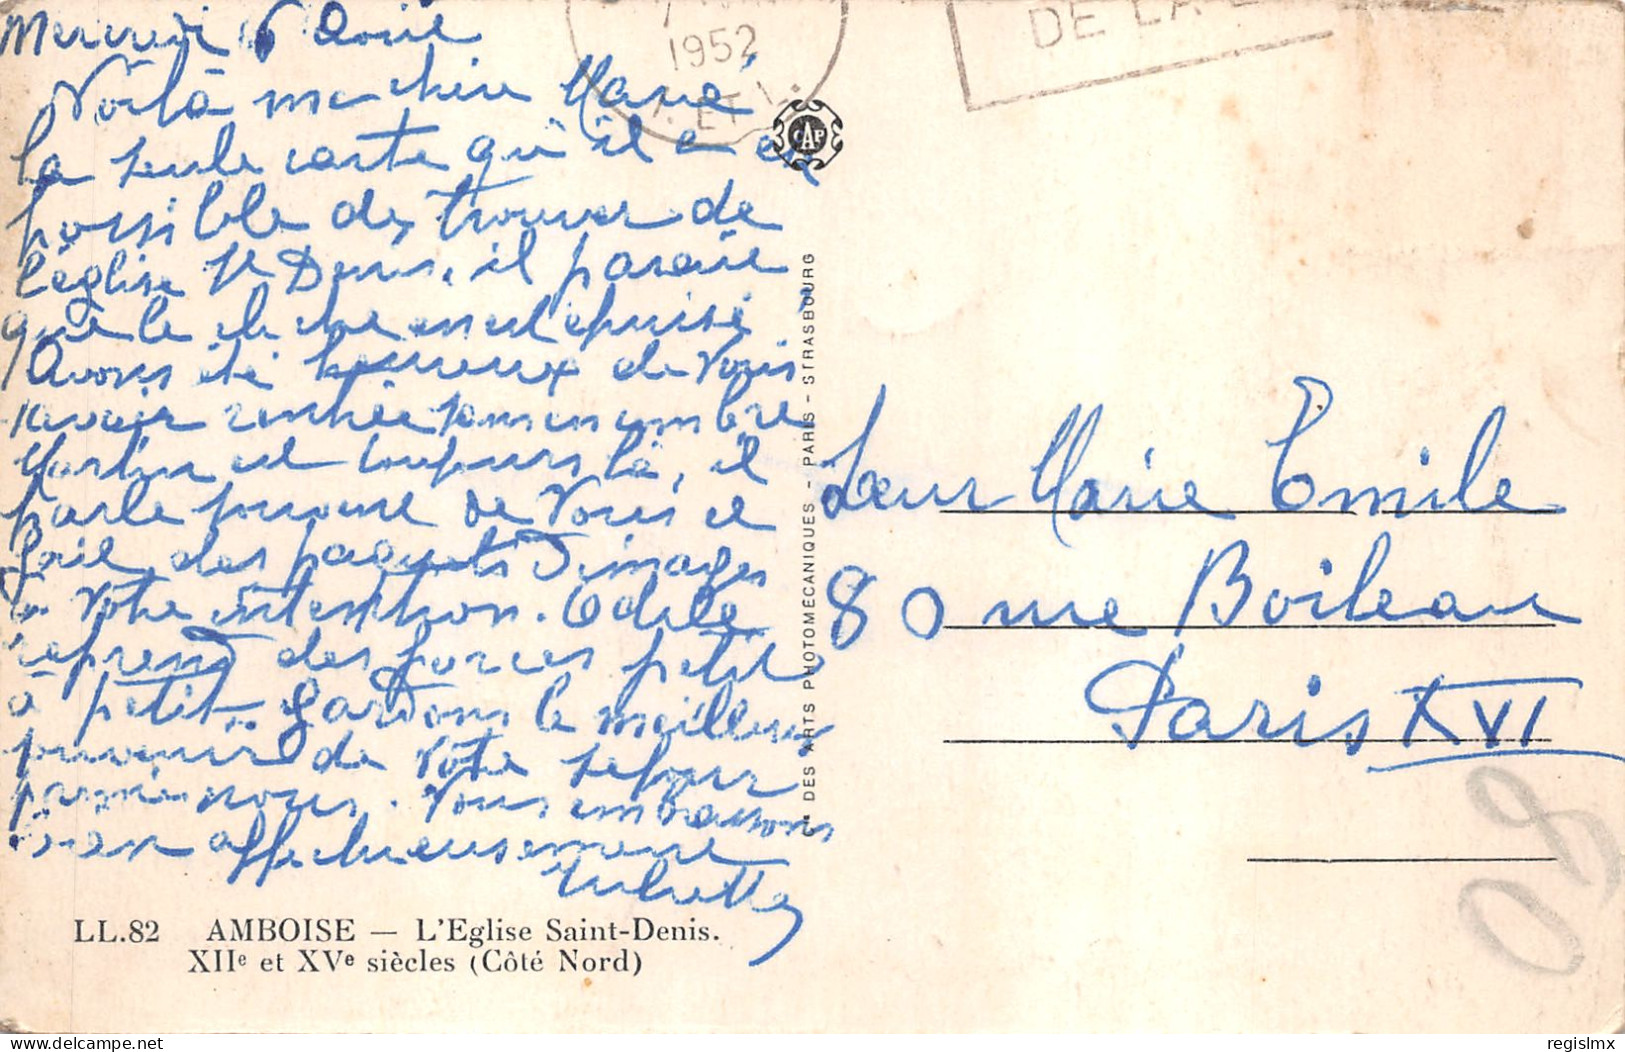 Mercredi 6 Août
Voilà ma chère Marie
la seule carte qu'il a été
possible de trouver de
l'église St Denis, il parait
que le cliché en est épuisé
Avons été heureux de vous
savoir rentrée sans encombre
Martin est toujours là, il
parle souvent de vous et
fait des paquets d'images
à votre intention. Odile
reprend des forces petit
à petit. Gardons le meilleur
souvenir de votre séjour
parmi nous. Vous embrassons
bien affectueusement
Juliette
1952
ET L.
DE LA
CAP
DES ARTS PHOTOMECANIQUES - PARIS - STRASBOURG
Sœur Marie Emile
80 rue Boileau
Paris XVI
80
LL.82 AMBOISE — L'Eglise Saint-Denis.
XIIe et XVe siècles (Côté Nord)
regislmx
delcampe.net